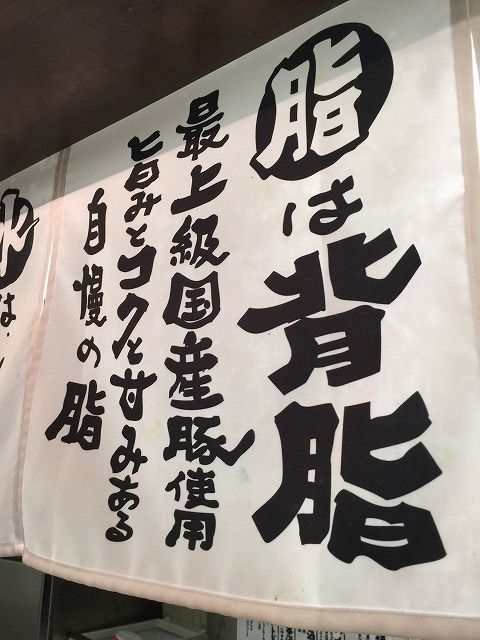 脂は背脂
最上級国産豚使用
旨みとコクと甘みある
自慢の脂
は